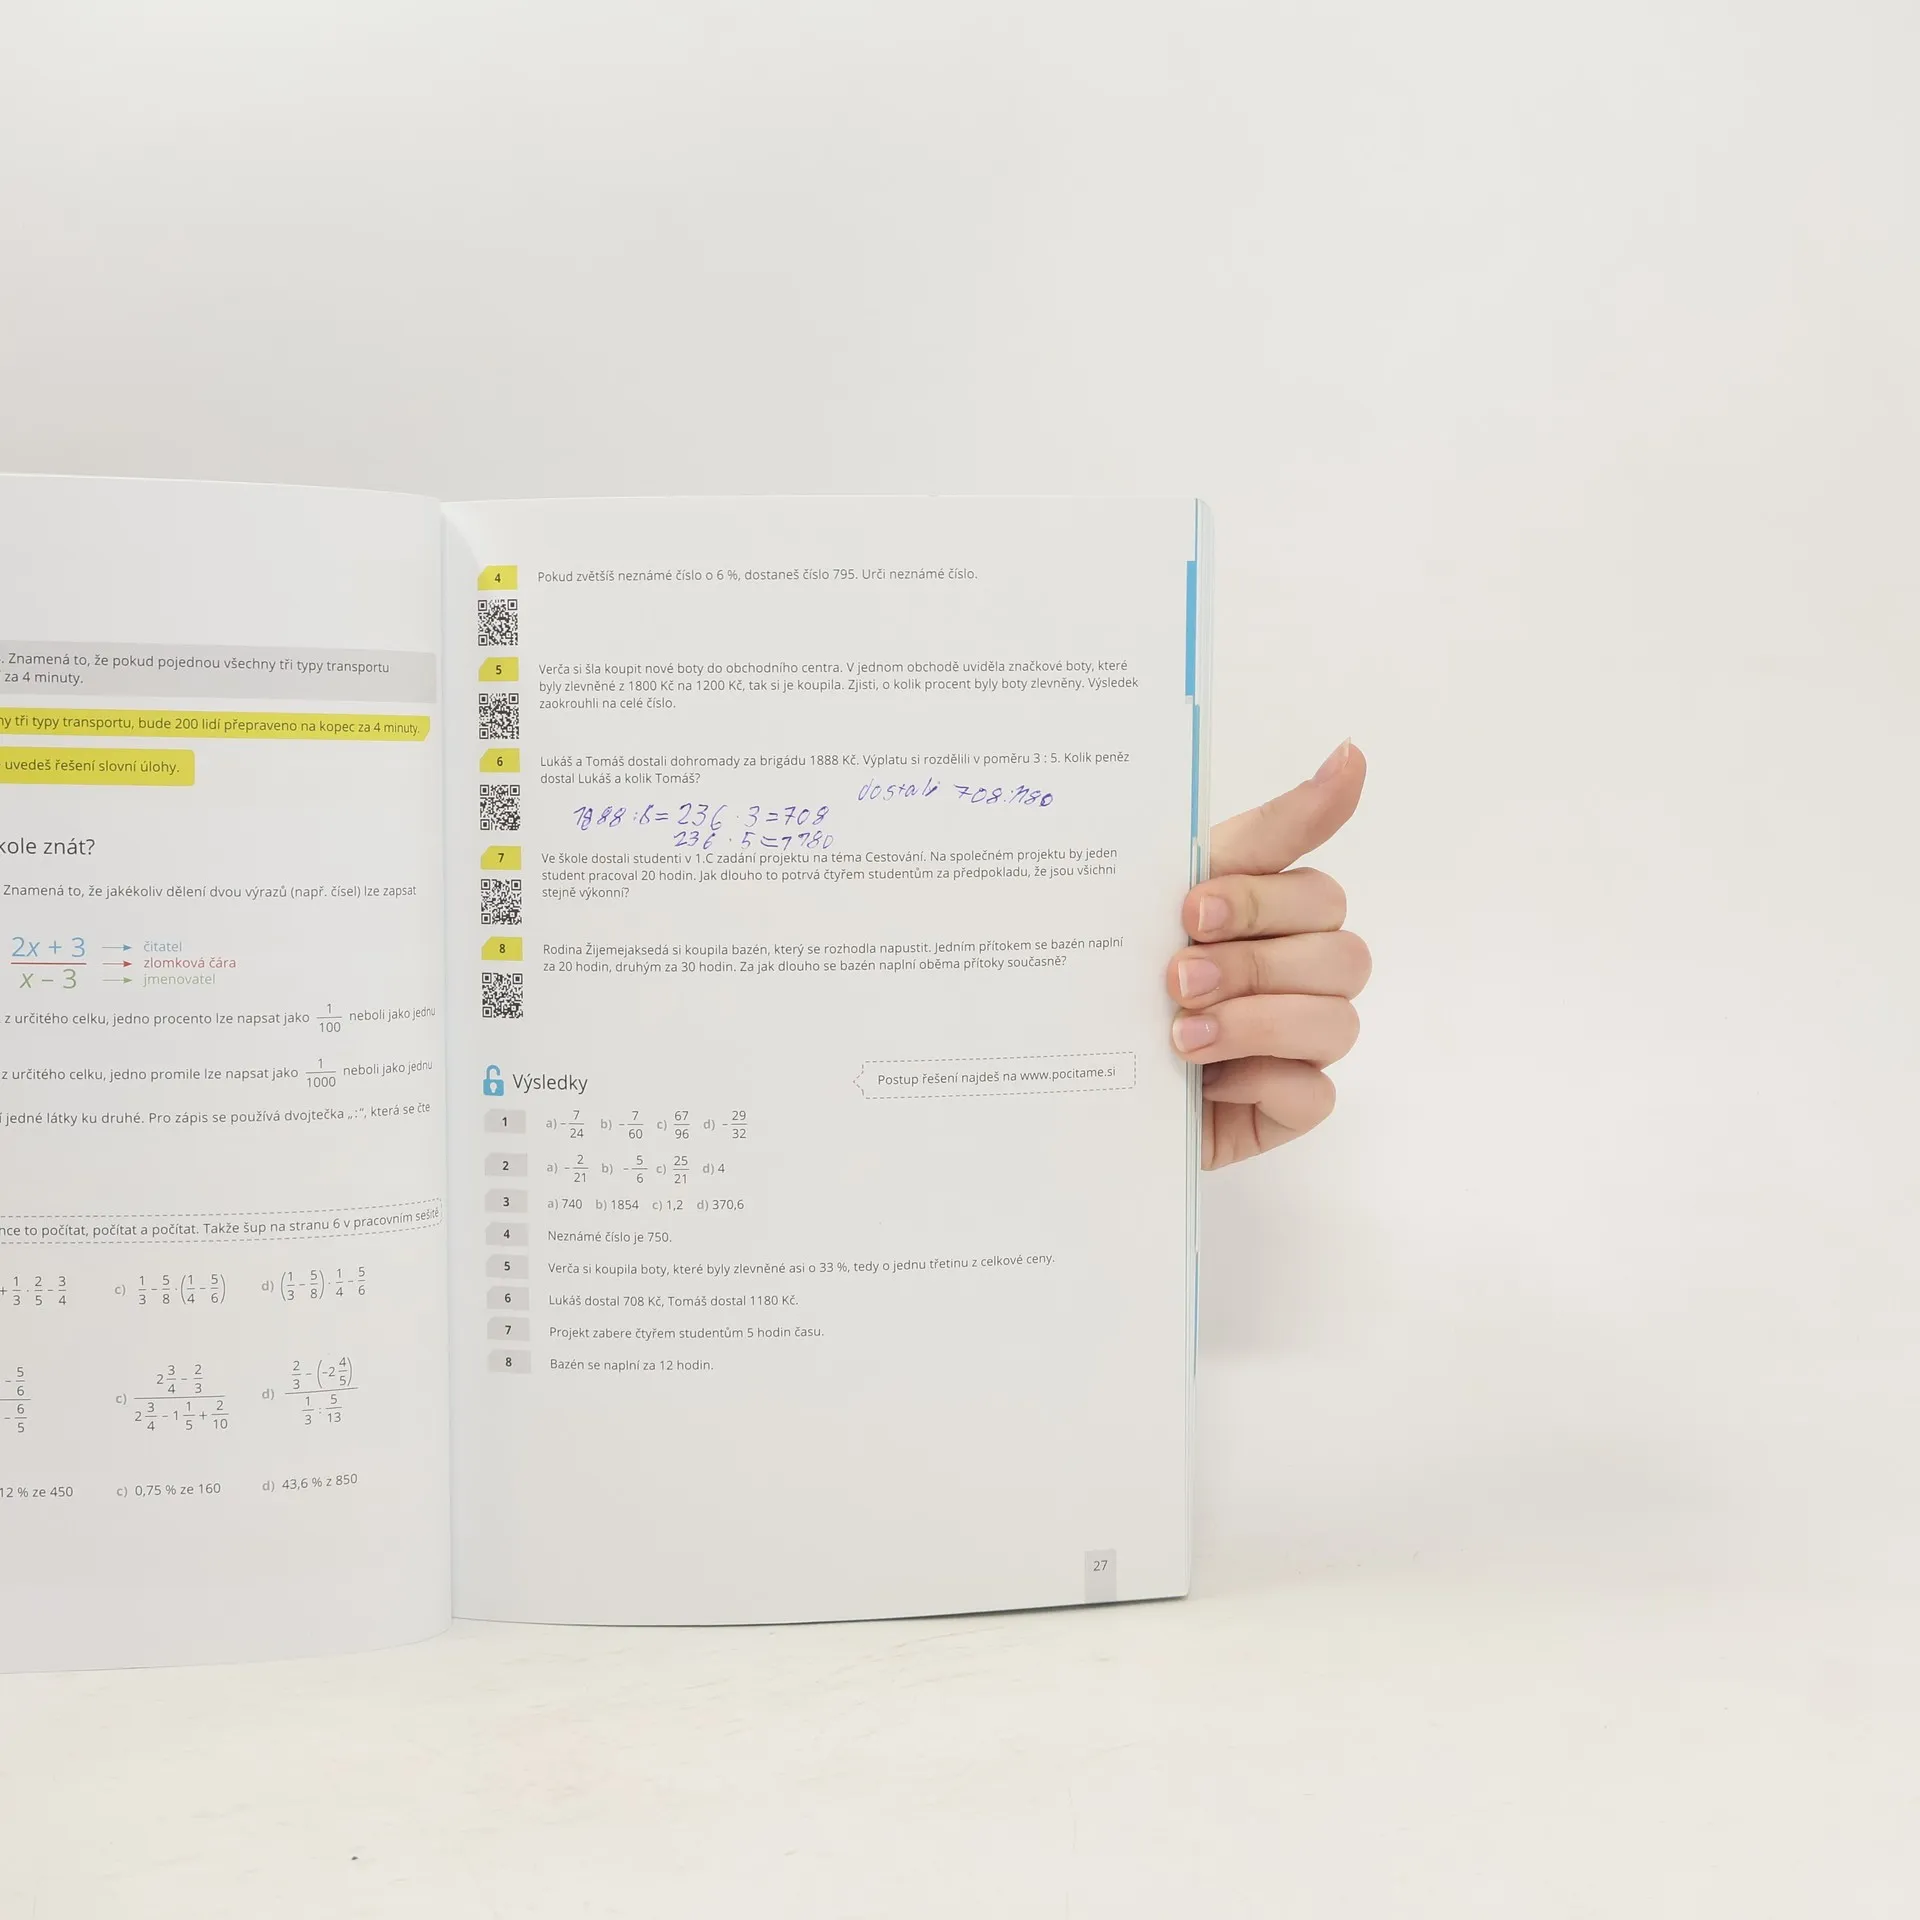 . Znamená to, že pokud pojednou všechny tři typy transportu
za 4 minuty.
ny tři typy transportu, bude 200 lidí přepraveno na kopec za 4 minuty.
uvedeš řešení slovní úlohy.
kole znát?
Znamená to, že jakékoliv dělení dvou výrazů (např. čísel) lze zapsat
2x + 3 čitatel
zlomková čára
x – 3 jmenovatel
z určitého celku, jedno procento lze napsat jako 1/100 neboli jako jednu
z určitého celku, jedno promile lze napsat jako 1/1000 neboli jako jednu
í jedné látky ku druhé. Pro zápis se používá dvojtečka „:“, která se čte
nce to počítat, počítat a počítat. Takže šup na stranu 6 v pracovním sešitě
+ 1/3 · 2/5 – 3/4 c) 1/3 – 5/8 · (1/4 – 5/6) d) (1/3 – 5/8) · 1/4 – 5/6
– 5/6
– 6/5
c) (2 3/4 – 2/3)/(2 3/4 – 1 1/5 + 2/10) d) (2/3 – (–2 4/5))/(1/3 : 5/13)
12 % ze 450 c) 0,75 % ze 160 d) 43,6 % z 850
4 Pokud zvětšíš neznámé číslo o 6 %, dostaneš číslo 795. Urči neznámé číslo.
5 Verča si šla koupit nové boty do obchodního centra. V jednom obchodě uviděla značkové boty, které
byly zlevněné z 1800 Kč na 1200 Kč, tak si je koupila. Zjisti, o kolik procent byly boty zlevněny. Výsledek
zaokrouhli na celé číslo.
6 Lukáš a Tomáš dostali dohromady za brigádu 1888 Kč. Výplatu si rozdělili v poměru 3 : 5. Kolik peněz
dostal Lukáš a kolik Tomáš?
dostali 708:1180
1888 :8= 236 · 3=708
236 · 5=1180
7 Ve škole dostali studenti v 1.C zadání projektu na téma Cestování. Na společném projektu by jeden
student pracoval 20 hodin. Jak dlouho to potrvá čtyřem studentům za předpokladu, že jsou všichni
stejně výkonní?
8 Rodina Žijemejaksedá si koupila bazén, který se rozhodla napustit. Jedním přítokem se bazén naplní
za 20 hodin, druhým za 30 hodin. Za jak dlouho se bazén naplní oběma přítoky současně?
Výsledky
Postup řešení najdeš na www.pocitame.si
1 a) –7/24 b) –7/60 c) 67/96 d) –29/32
2 a) –2/21 b) –5/6 c) 25/21 d) 4
3 a) 740 b) 1854 c) 1,2 d) 370,6
4 Neznámé číslo je 750.
5 Verča si koupila boty, které byly zlevněné asi o 33 %, tedy o jednu třetinu z celkové ceny.
6 Lukáš dostal 708 Kč, Tomáš dostal 1180 Kč.
7 Projekt zabere čtyřem studentům 5 hodin času.
8 Bazén se naplní za 12 hodin.
27